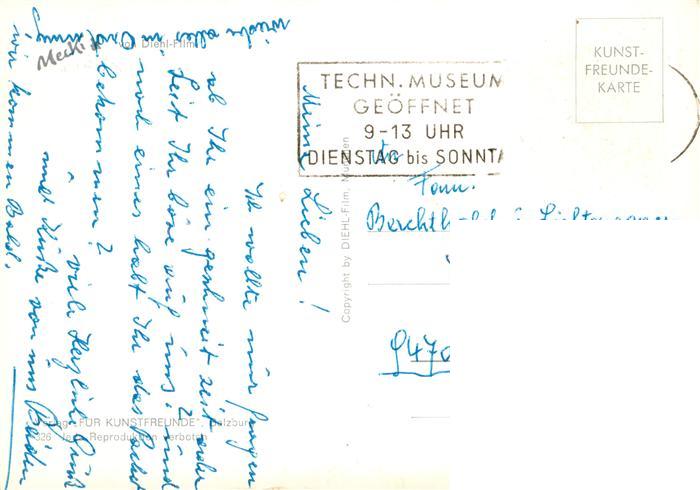 wieder alles in Ord
Mecki
von Diehl-Film
TECHN. MUSEUM
GEÖFFNET
9-13 UHR
DIENSTAG bis SONNTA
KUNST-
FREUNDE-
KARTE
Meine Lieben!
Ich wollte nur fragen
ob Ihr eingeschneit seit oder
seit Ihr böse auf uns? und
noch eines habt Ihr das Packet
bekommen?
viele Herzliche Grüße
und Küße von uns Beiden
wir kommen Bald.
Fam.
9470
Copyright by DIEHL-Film, München
Verlag „FÜR KUNSTFREUNDE", Salzburg
326 Jede Reproduktion verboten